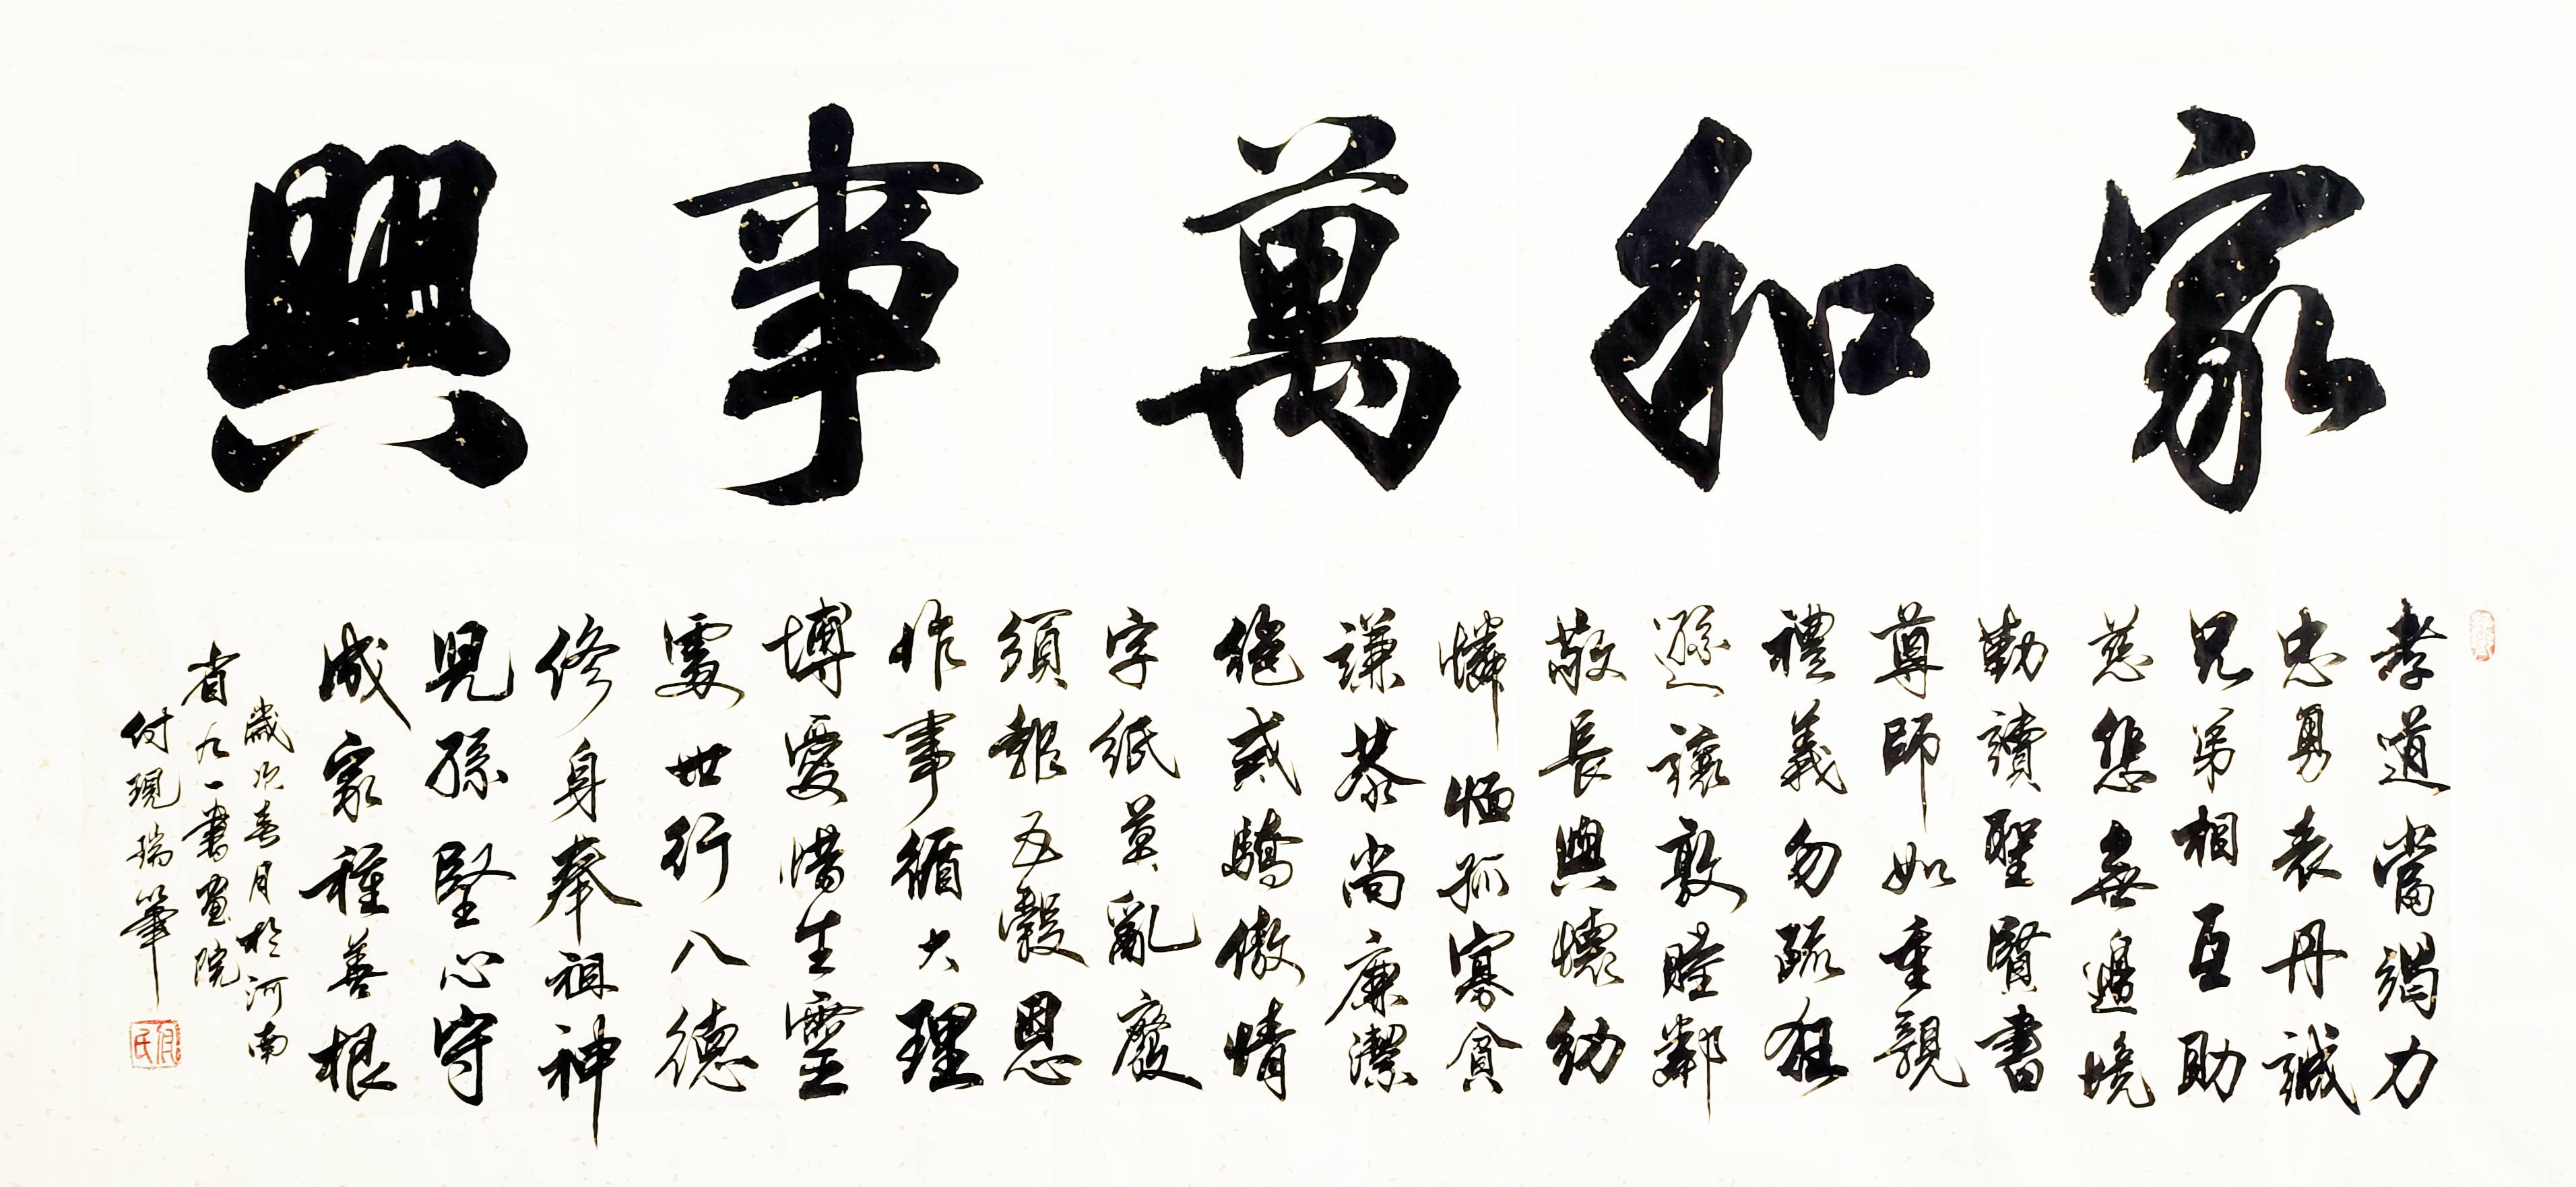 家和萬事興
孝道當竭力
忠勇表丹誠
兄弟相互助
慈悲無邊境
勤讀聖賢書
尊師如重親
禮義勿疏狂
遜讓敦睦鄰
敬長與懷幼
憐恤孤寡貧
謙恭尚廉潔
絕戒驕傲情
字紙莫亂廢
須報五穀恩
作事循天理
博愛惜生靈
處世行八德
修身奉祖神
兒孫堅心守
成家種善根
歲次春月於河南
省九一書畫院
付現瑞筆